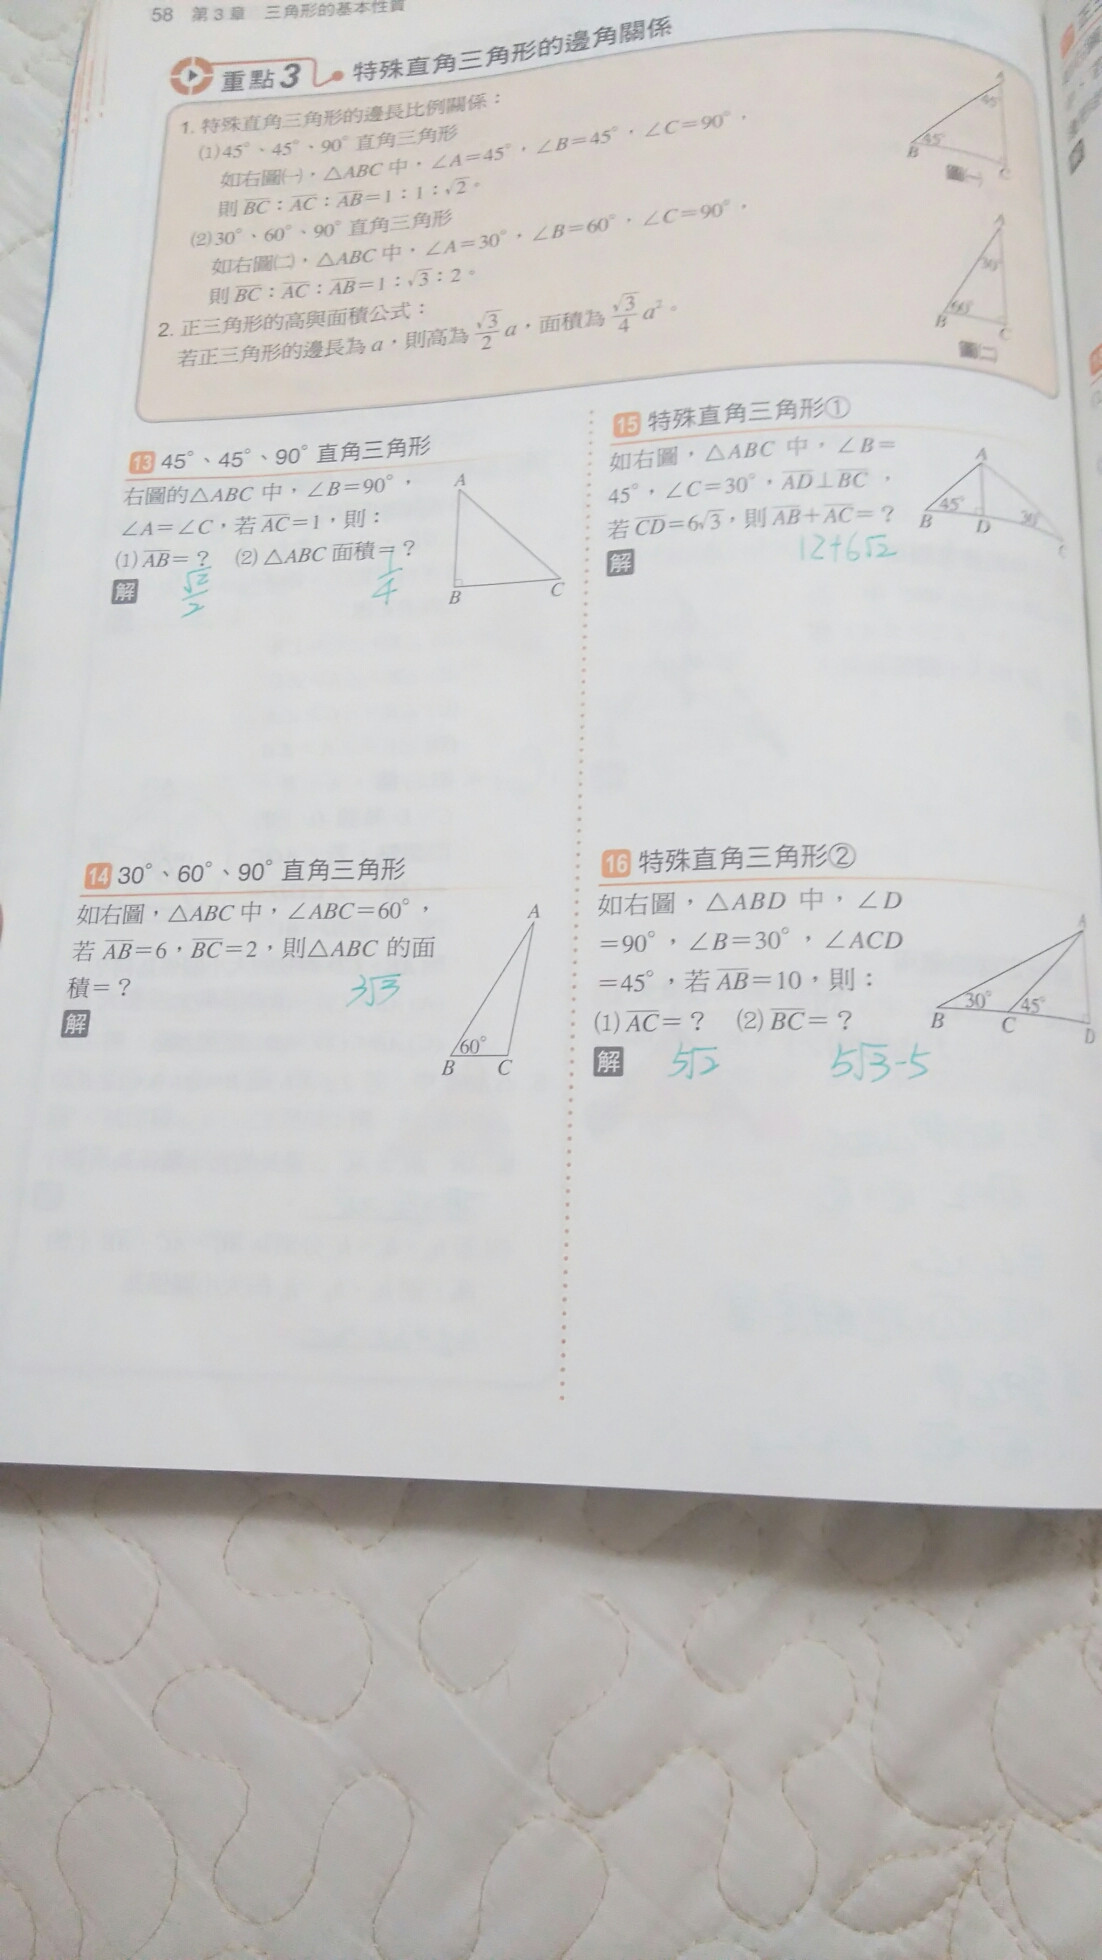 58 第3章 三角形的基本性質
重點3 特殊直角三角形的邊角關係
1. 特殊直角三角形的邊長比例關係：
(1)45°、45°、90° 直角三角形
如右圖㈠，△ABC 中，∠A=45°，∠B=45°，∠C=90°，
則 BC：AC：AB=1：1：√2。
(2)30°、60°、90° 直角三角形
如右圖㈡，△ABC 中，∠A=30°，∠B=60°，∠C=90°，
則 BC：AC：AB=1：√3：2。
2. 正三角形的高與面積公式：
若正三角形的邊長為 a，則高為 √3/2 a，面積為 √3/4 a²。
A
45°
45°
B
C
圖㈠
A
30°
60°
B
C
圖㈡
13 45°、45°、90° 直角三角形
右圖的△ABC 中，∠B=90°，
∠A=∠C，若 AC=1，則：
(1) AB=？ (2) △ABC 面積=？
解 √2/2 1/4
A
B
C
14 30°、60°、90° 直角三角形
如右圖，△ABC 中，∠ABC=60°，
若 AB=6，BC=2，則△ABC 的面
積=？ 3√3
解
A
60°
B
C
15 特殊直角三角形①
如右圖，△ABC 中，∠B=
45°，∠C=30°，AD⊥BC，
若 CD=6√3，則 AB+AC=？
12+6√2
解
A
45°
30°
B
D
C
16 特殊直角三角形②
如右圖，△ABD 中，∠D
=90°，∠B=30°，∠ACD
=45°，若 AB=10，則：
(1) AC=？ (2) BC=？
解 5√2 5√3-5
A
30°
45°
B
C
D